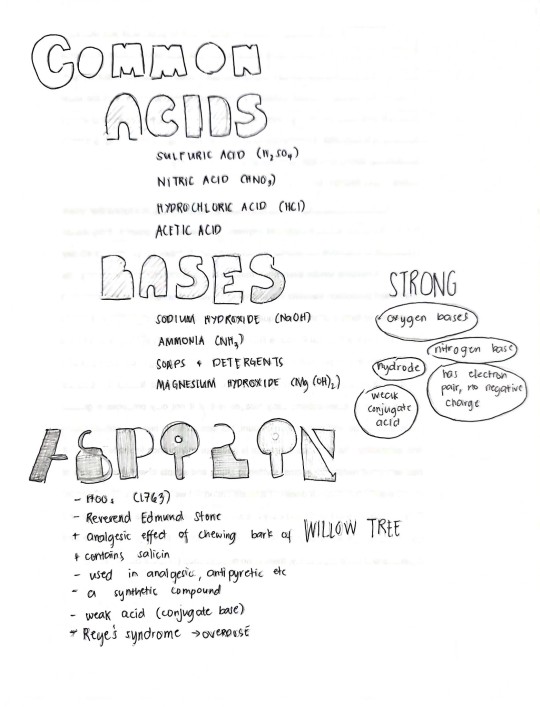 COMMON
ACIDS
SULFURIC ACID (H₂SO₄)
NITRIC ACID (HNO₃)
HYDROCHLORIC ACID (HCl)
ACETIC ACID
BASES
SODIUM HYDROXIDE (NaOH)
AMMONIA (NH₃)
SOAPS + DETERGENTS
MAGNESIUM HYDROXIDE (Mg(OH)₂)
STRONG
oxygen bases
nitrogen base
hydrode
has electron
pair, no negative
charge
weak
conjugate
acid
ASPIRIN
- 1700s (1763)
- Reverend Edmund Stone
+ analgesic effect of chewing bark of WILLOW TREE
+ contains salicin
- used in analgesic, antipyretic etc
- a synthetic compound
- weak acid (conjugate base)
* Reye's syndrome → OVERDOSE